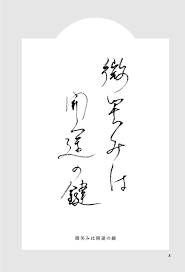 微笑みは
開運の鍵
微笑みは開運の鍵